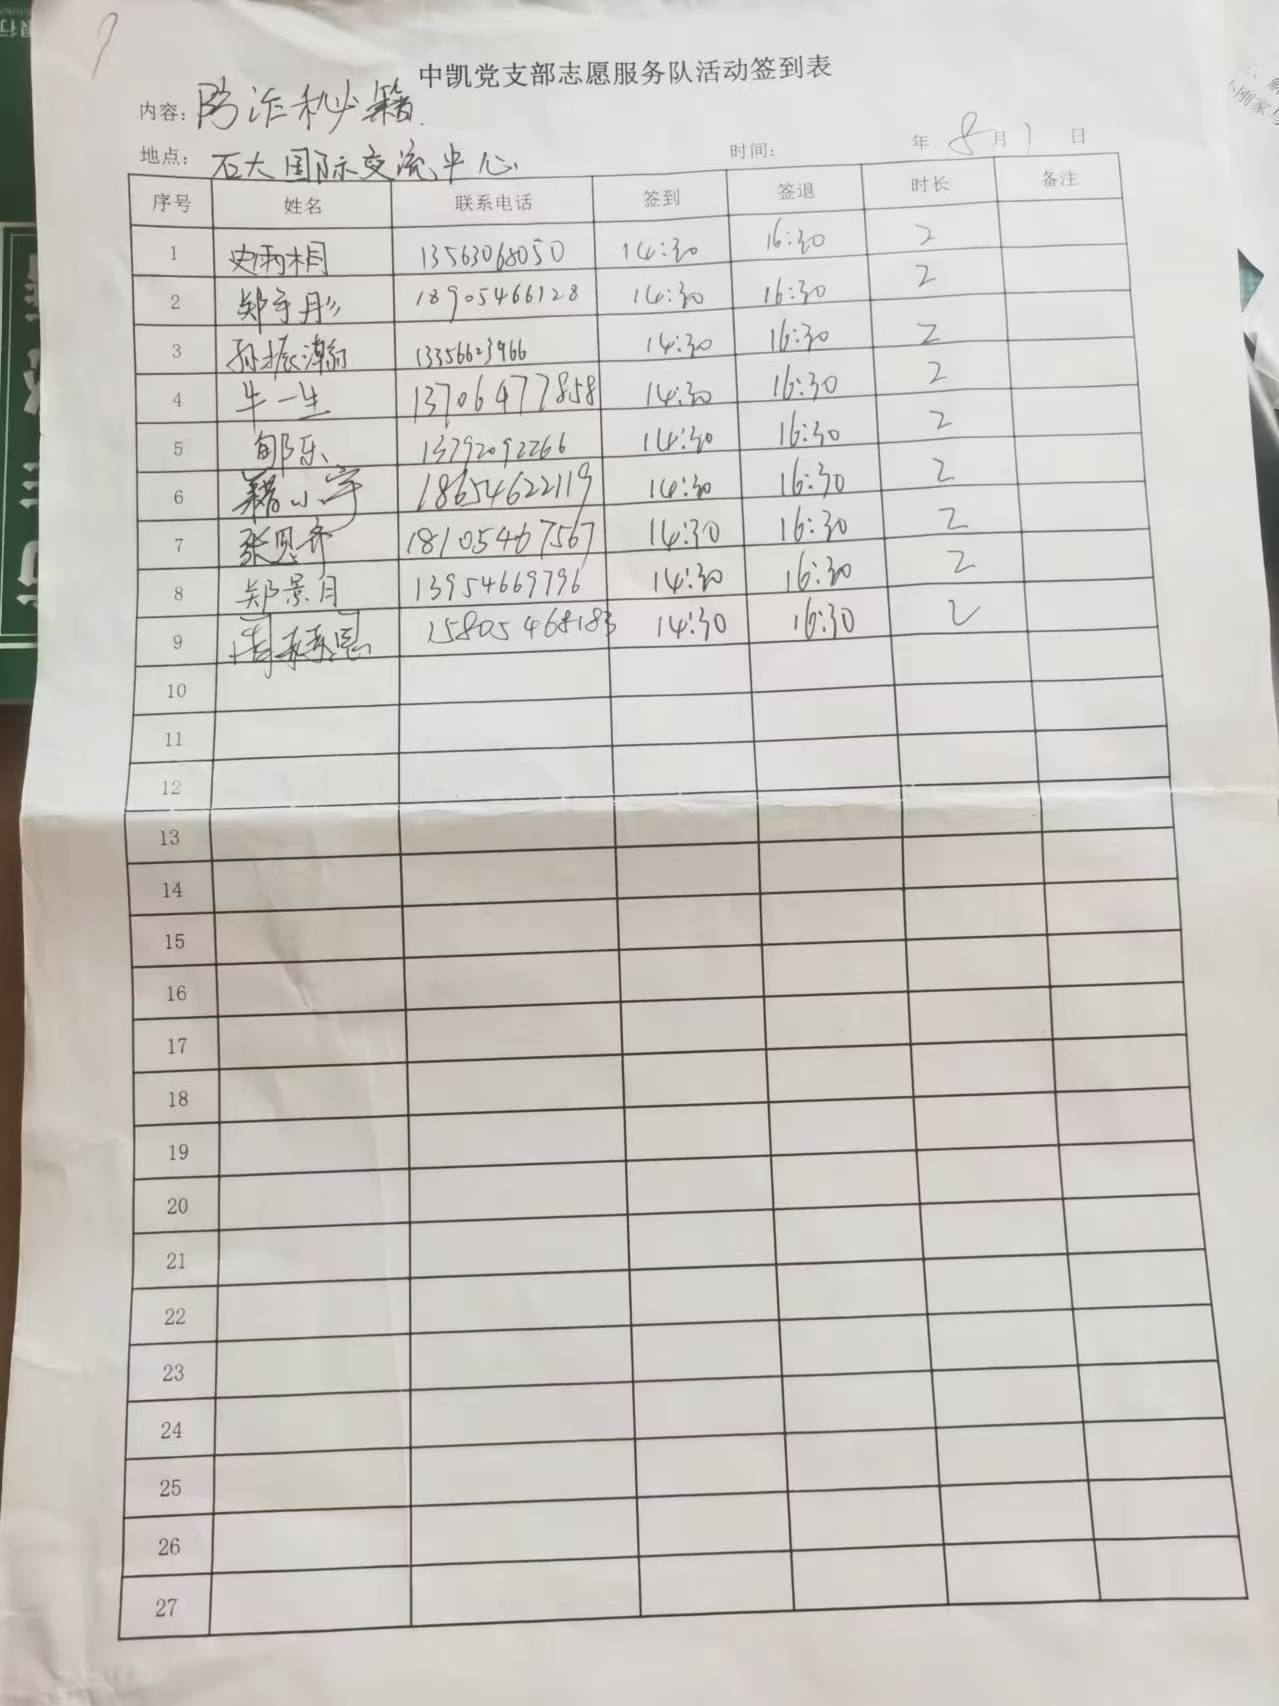 中凯党支部志愿服务队活动签到表
内容: 防诈秘籍.
地点: 石大国际交流中心 时间: 年 8月1日
序号 姓名 联系电话 签到 签退 时长 备注
1 史雨桐 13563068050 14:30 16:30 2
2 郑宇彤 18905466128 14:30 16:30 2
3 孙振瀚 13356623966 14:30 16:30 2
4 牛一生 13706477858 14:30 16:30 2
5 13792092266 14:30 16:30 2
6 籍小宇 18654622119 14:30 16:30 2
7 张恩齐 18105467567 14:30 16:30 2
8 郑景月 13954669796 14:30 16:30 2
9 15805468183 14:30 16:30 2
10
11
12
13
14
15
16
17
18
19
20
21
22
23
24
25
26
27